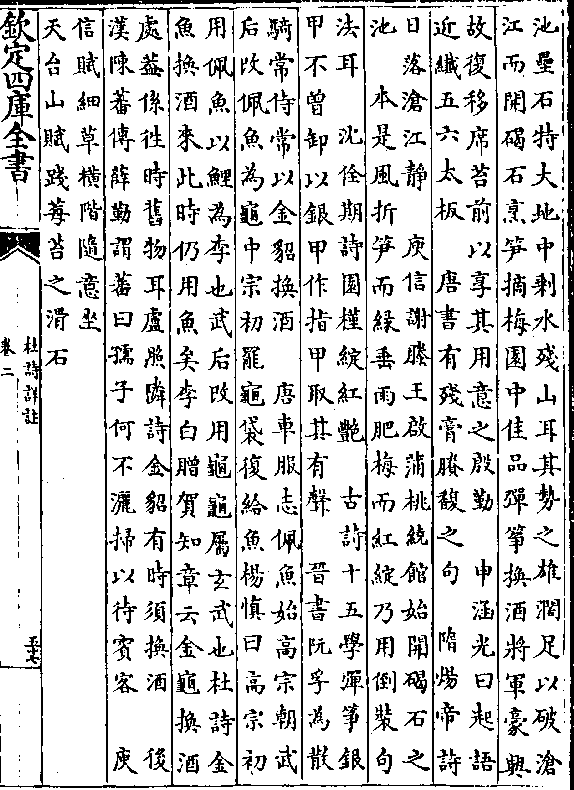 池壘石特大地中剩水殘山耳其勢之雄濶足以破滄
江而開碣石烹笋摘梅園中佳品彈箏換酒將軍豪興
故復移席苔前以享其用意之殷勤　申涵光曰起語
近纖五六太板　唐書有殘膏賸馥之句　隋煬帝詩
日落滄江靜　庾信謝滕王啟蒲桃繞館始開碣石之
池　本是風折笋而緑垂雨肥梅而紅綻乃用倒裝句
法耳　沈佺期詩園槿綻紅艶　古詩十五學彈箏銀
甲不曾卸以銀甲作指甲取其有聲　晉書阮孚為散
騎常侍常以金貂換酒　唐車服志佩魚始高宗朝武
后改佩魚為龜中宗初罷龜袋復給魚楊慎曰高宗初
用佩魚以鯉為李也武后改用龜龜屬玄武也杜詩金
魚換酒來此時仍用魚矣李白贈賀知章云金龜換酒
處葢係徃時舊物耳盧照隣詩金貂有時須換酒　後
漢陳蕃傳薛勤謂蕃曰孺子何不灑掃以待賓客　庾
信賦細草橫階隨意坐
天台山賦踐莓苔之滑石
欽定四庫全書
杜詩詳註
卷二